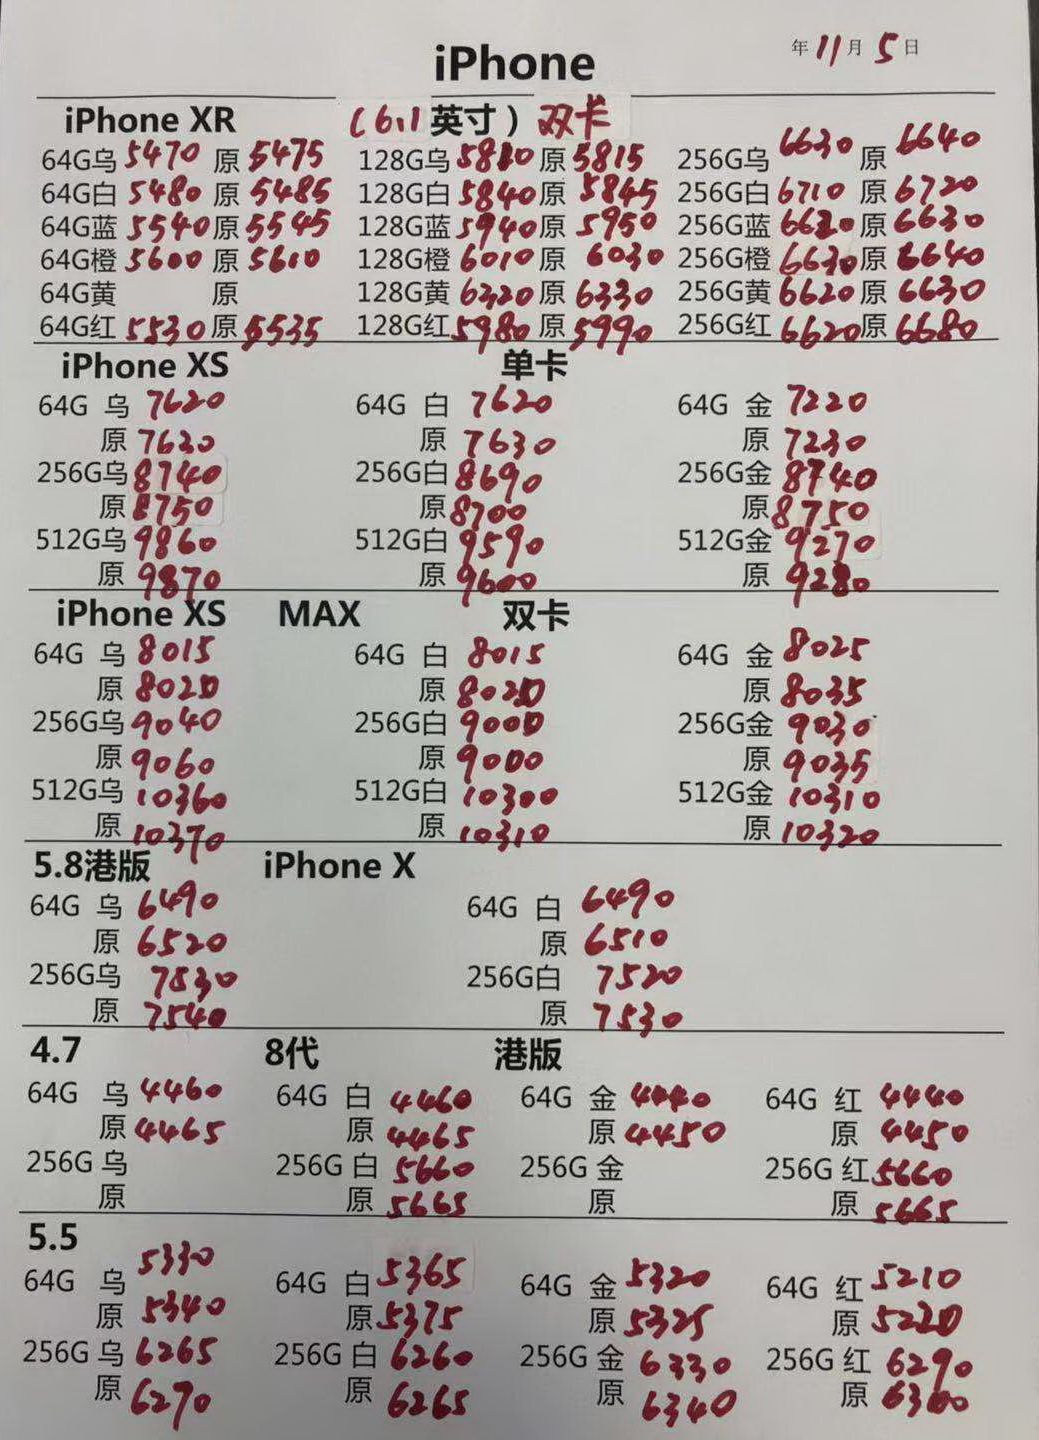 年11月5日
iPhone
iPhone XR (6.1英寸) 双卡
64G乌 5470 原 5475 128G乌 5810 原 5815 256G乌 6630 原 6640
64G白 5480 原 5485 128G白 5840 原 5845 256G白 6710 原 6720
64G蓝 5540 原 5545 128G蓝 5940 原 5950 256G蓝 6620 原 6630
64G橙 5600 原 5610 128G橙 6010 原 6030 256G橙 6630 原 6640
64G黄 原 128G黄 6320 原 6330 256G黄 6620 原 6630
64G红 5530 原 5535 128G红 5980 原 5990 256G红 6620 原 6680
iPhone XS 单卡
64G 乌 7620 64G 白 7620 64G 金 7220
原 7620 原 7630 原 7230
256G乌 8740 256G白 8690 256G金 8740
原 8750 原 8700 原 8750
512G乌 9860 512G白 9590 512G金 9270
原 9870 原 9600 原 9280
iPhone XS MAX 双卡
64G 乌 8015 64G 白 8015 64G 金 8025
原 8020 原 8020 原 8035
256G乌 9040 256G白 9000 256G金 9030
原 9060 原 9000 原 9035
512G乌 10360 512G白 10300 512G金 10310
原 10370 原 10310 原 10320
5.8港版 iPhone X
64G 乌 6490 64G 白 6490
原 6520 原 6510
256G乌 7530 256G白 7520
原 7540 原 7530
4.7 8代 港版
64G 乌 4460 64G 白 4460 64G 金 4440 64G 红 4440
原 4465 原 4465 原 4450 原 4450
256G 乌 256G 白 5660 256G 金 256G 红 5660
原 原 5665 原 原 5665
5.5
64G 乌 5330 64G 白 5365 64G 金 5320 64G 红 5210
原 5340 原 5375 原 5325 原 5220
256G 乌 6265 256G 白 6260 256G 金 6330 256G 红 6290
原 6270 原 6265 原 6340 原 6300